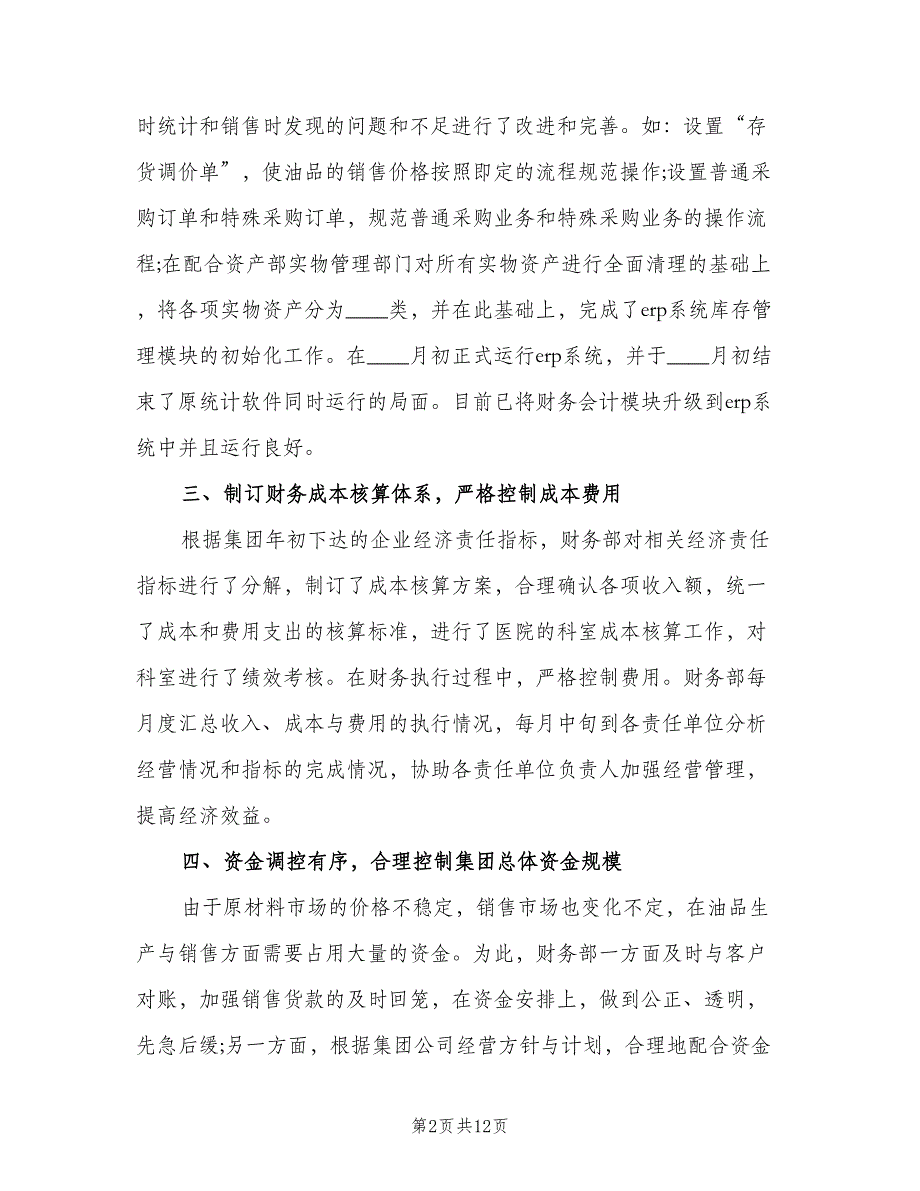 时统计和销售时发现的问题和不足进行了改进和完善。如：设置“存
货调价单”，使油品的销售价格按照即定的流程规范操作;设置普通采
购订单和特殊采购订单，规范普通采购业务和特殊采购业务的操作流
程;在配合资产部实物管理部门对所有实物资产进行全面清理的基础上
，将各项实物资产分为____类，并在此基础上，完成了erp系统库存管
理模块的初始化工作。在____月初正式运行erp系统，并于____月初结
束了原统计软件同时运行的局面。目前已将财务会计模块升级到erp系
统中并且运行良好。
三、制订财务成本核算体系，严格控制成本费用
根据集团年初下达的企业经济责任指标，财务部对相关经济责任
指标进行了分解，制订了成本核算方案，合理确认各项收入额，统一
了成本和费用支出的核算标准，进行了医院的科室成本核算工作，对
科室进行了绩效考核。在财务执行过程中，严格控制费用。财务部每
月度汇总收入、成本与费用的执行情况，每月中旬到各责任单位分析
经营情况和指标的完成情况，协助各责任单位负责人加强经营管理，
提高经济效益。
四、资金调控有序，合理控制集团总体资金规模
由于原材料市场的价格不稳定，销售市场也变化不定，在油品生
产与销售方面需要占用大量的资金。为此，财务部一方面及时与客户
对账，加强销售货款的及时回笼，在资金安排上，做到公正、透明，
先急后缓;另一方面，根据集团公司经营方针与计划，合理地配合资金
第2页共12页